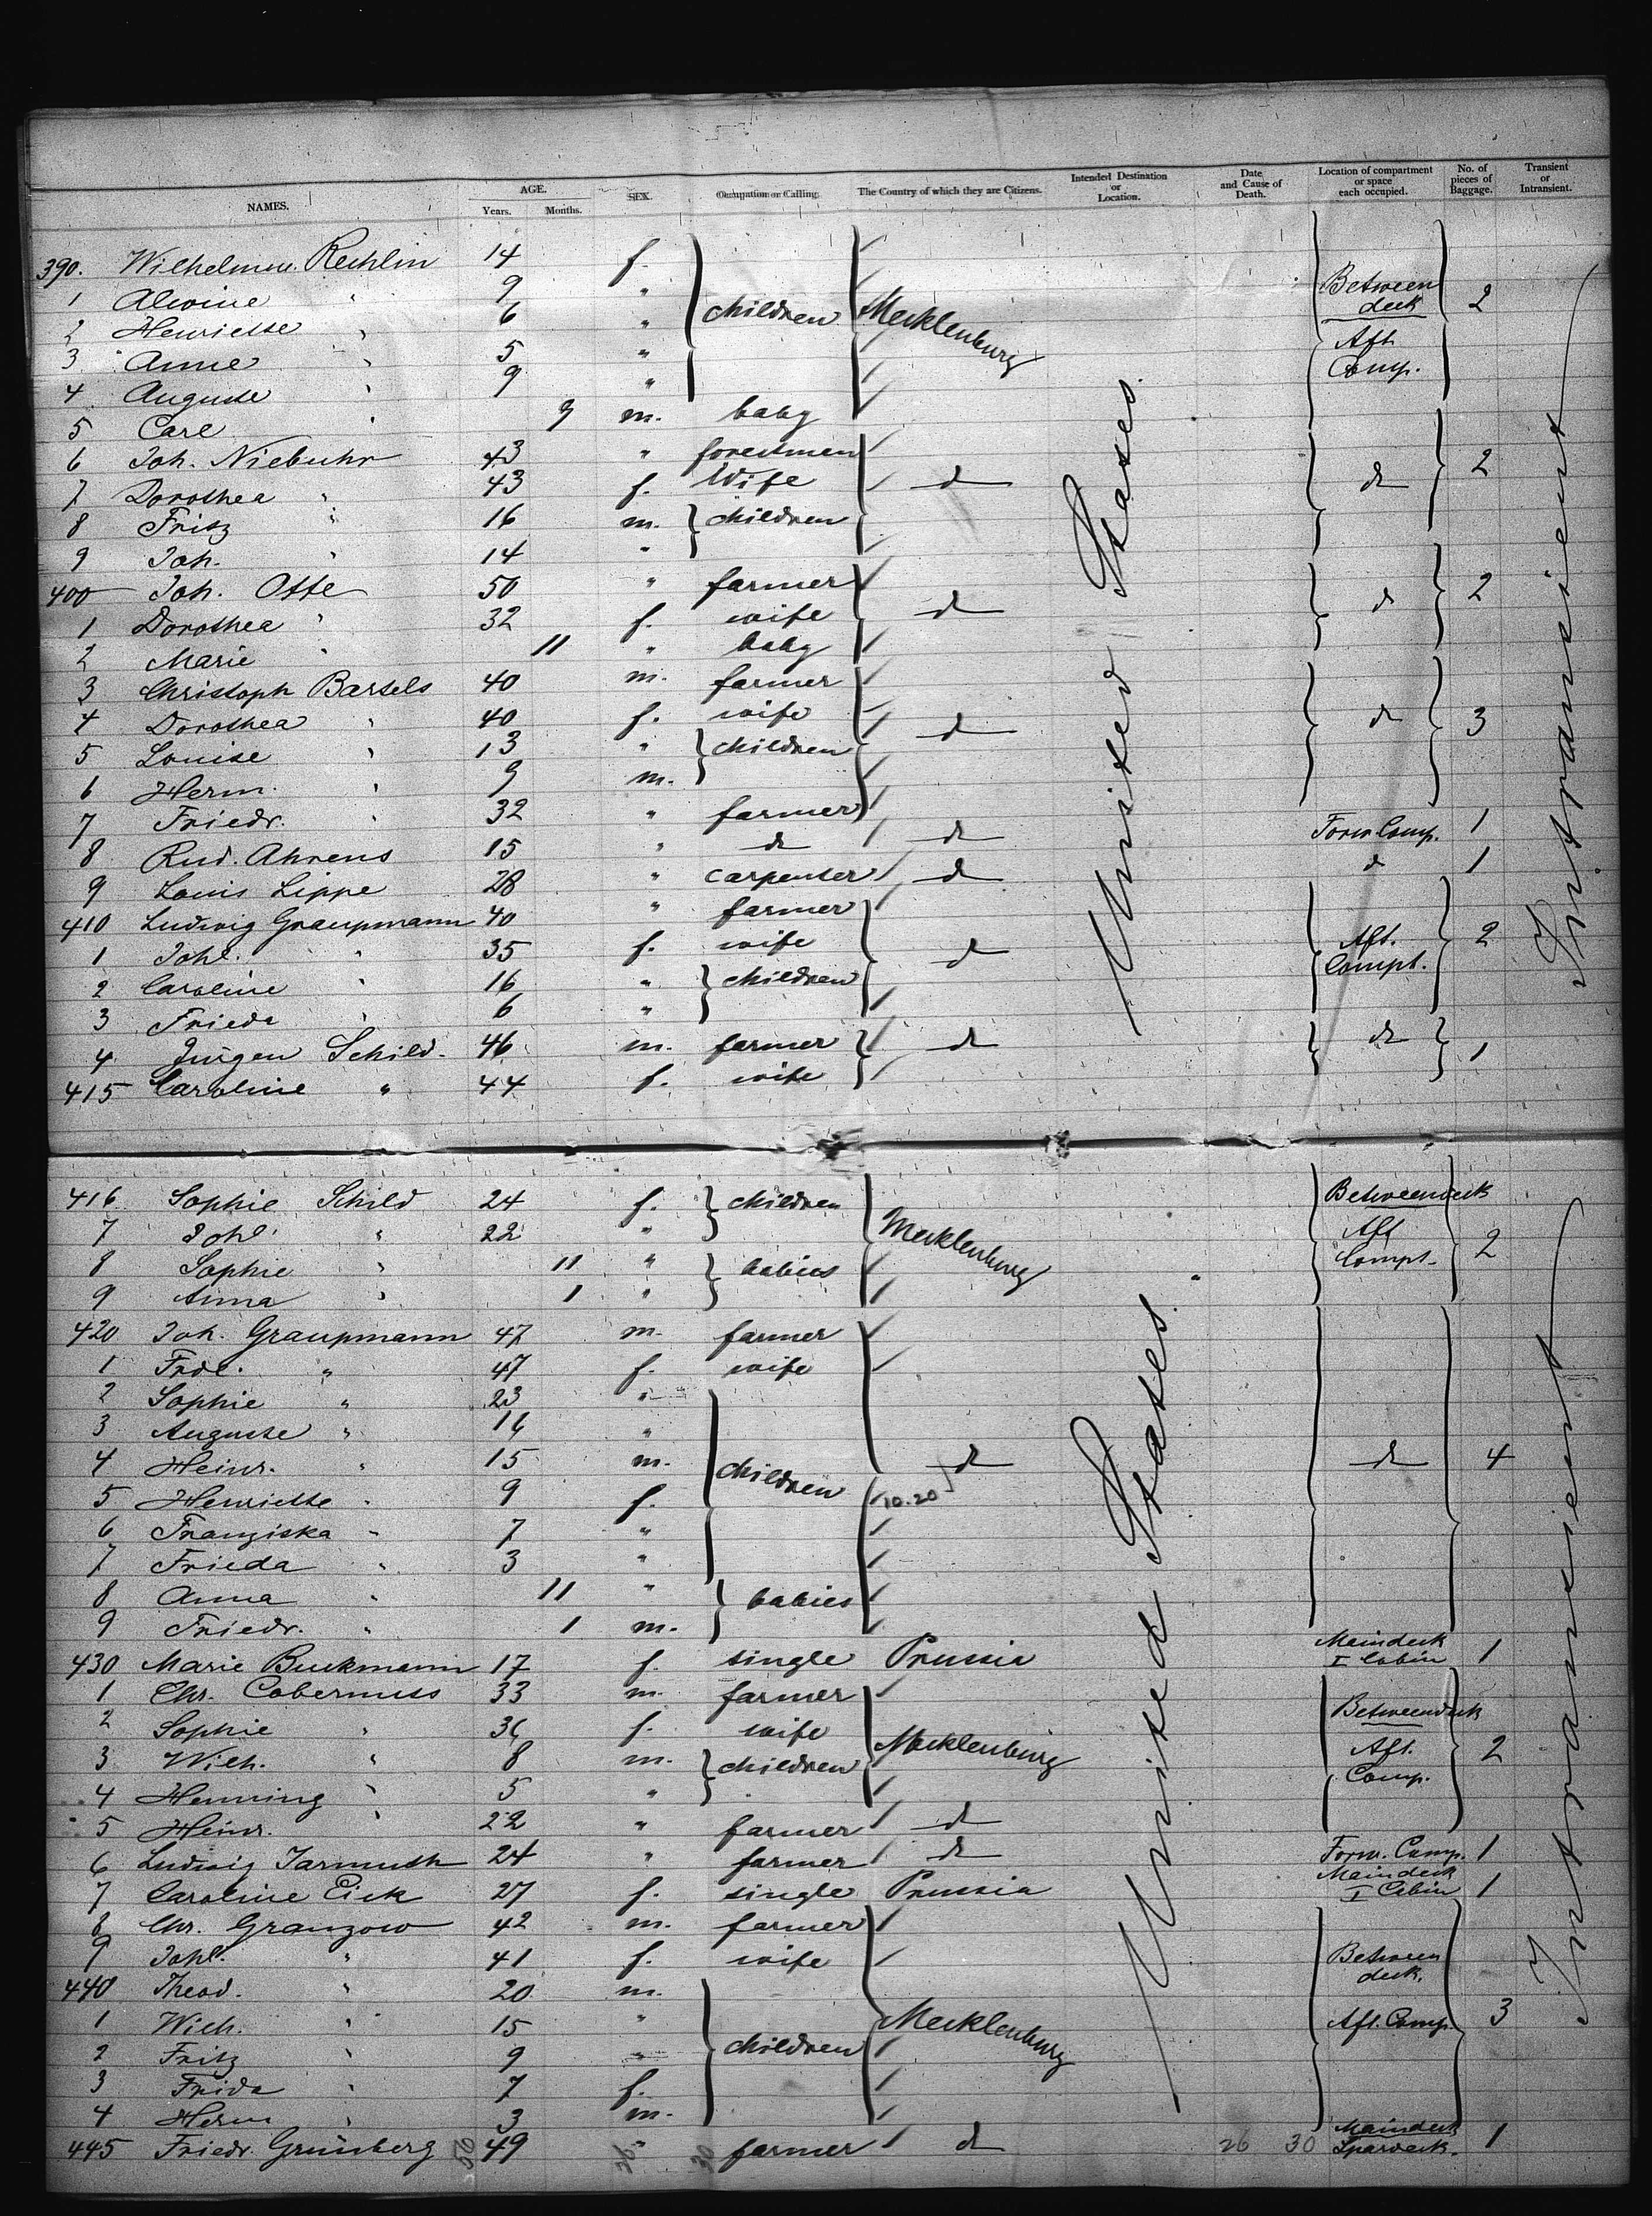 NAMES. AGE. Years. Months. SEX. Occupation or Calling. The Country of which they are Citizens. Intended Destination or Location. Date and Cause of Death. Location of compartment or space each occupied. No. of pieces of Baggage. Transient or Intransient.
390. Wilhelmine Rechlin 14 f.
1 Alwine " 9 "
2 Henriette " 6 " children Mecklenburg Between deck 2
3 Anne " 5 " Aft
4 Auguste " 9 " Comp.
5 Carl " 9 m. baby
6 Joh. Niebuhr 43 " forestmen
7 Dorothea " 43 f. Wife do do 2
8 Fritz " 16 m. children
9 Joh. " 14 "
400 Joh. Otte 50 " farmer
1 Dorothea " 32 f. wife do do 2
2 Marie " 11 " baby
3 Christoph Bartels 40 m. farmer
4 Dorothea " 40 f. wife do do 3
5 Louise " 13 " children
6 Herm. " 9 m.
7 Friedr. " 32 " farmer
8 Rud. Ahrens 15 " do do Forw Comp. 1
9 Louis Lippe 28 " carpenter do do 1
410 Ludwig Graupmann 40 " farmer
1 Johl. " 35 f. wife do Aft. Compt. 2
2 Caroline " 16 " children
3 Frieda " 6 "
4 Jürgen Schild. 46 m. farmer do do 1
415 Caroline " 44 f. wife
United States
Intransient
416 Sophie Schild 24 f. children Betweendeck
7 Johl. " 22 " Mecklenburg Aft
8 Sophie " 11 " babies Compt. 2
9 Anna " 1 "
420 Joh. Graupmann 47 m. farmer
1 Frdl. " 47 f. wife
2 Sophie " 23 "
3 Auguste " 16 "
4 Heinr. " 15 m. children do do 4
5 Henriette " 9 f. 10.20
6 Franziska " 7 "
7 Frieda " 3 "
8 Anna " 11 " babies
9 Friedr. " 1 m.
430 Marie Buckmann 17 f. single Prussia Maindeck I Cabin 1
1 Chr. Cobernuss 33 m. farmer
2 Sophie " 36 f. wife Mecklenburg Betweendeck
3 Wilh. " 8 m. children Aft. 2
4 Henning " 5 " Comp.
5 Heinr. " 22 " farmer do
6 Ludwig Jarmuth 24 " farmer do Forw. Comp. 1
7 Caroline Eick 27 f. single Prussia Maindeck I Cabin 1
8 Chr. Granzow 42 m. farmer
9 Johl. " 41 f. wife Between deck.
440 Theod. " 20 m.
1 Wilh. " 15 " Mecklenburg Aft. Comp. 3
2 Fritz " 9 " children
3 Frida " 7 f.
4 Herm " 3 m.
445 Friedr. Grünberg 49 " farmer do 26 30 Maindeck Spardeck. 1
United States
Intransient